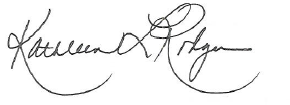 Kathleen L Rodgers